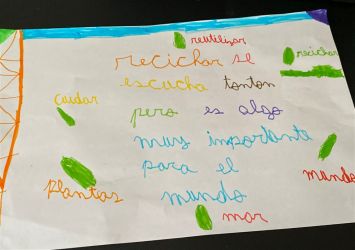 reutilizar
recichar se
recichar
escucha tonton
cuidar
pero es algo
muy importante
para el
mundo
plantas
mundo
mar